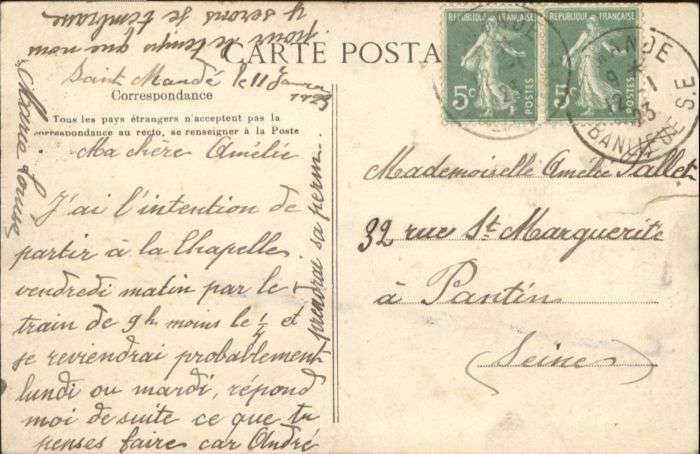 CARTE POSTA
Correspondance
Tous les pays étrangers n'acceptent pas la
correspondance au recto, se renseigner à la Poste
RÉPUBLIQUE FRANÇAISE
5c
POSTES
RÉPUBLIQUE FRANÇAISE
5c
POSTES
BANLIEUE S.E.
Saint Mandé le 11
Ma chère Amélie
J'ai l'intention de
partir à la Chapelle
vendredi matin par le
train de 9h moins le ¼ et
je reviendrai probablement
lundi ou mardi, répond
moi de suite ce que tu
penses faire car André
prendrai sa perm
pour le temps que nous
y serons je t'embrasse
Marie Louise
Mademoiselle Amélie Pallet
32 rues St Marguerite
à Pantin
(Seine)